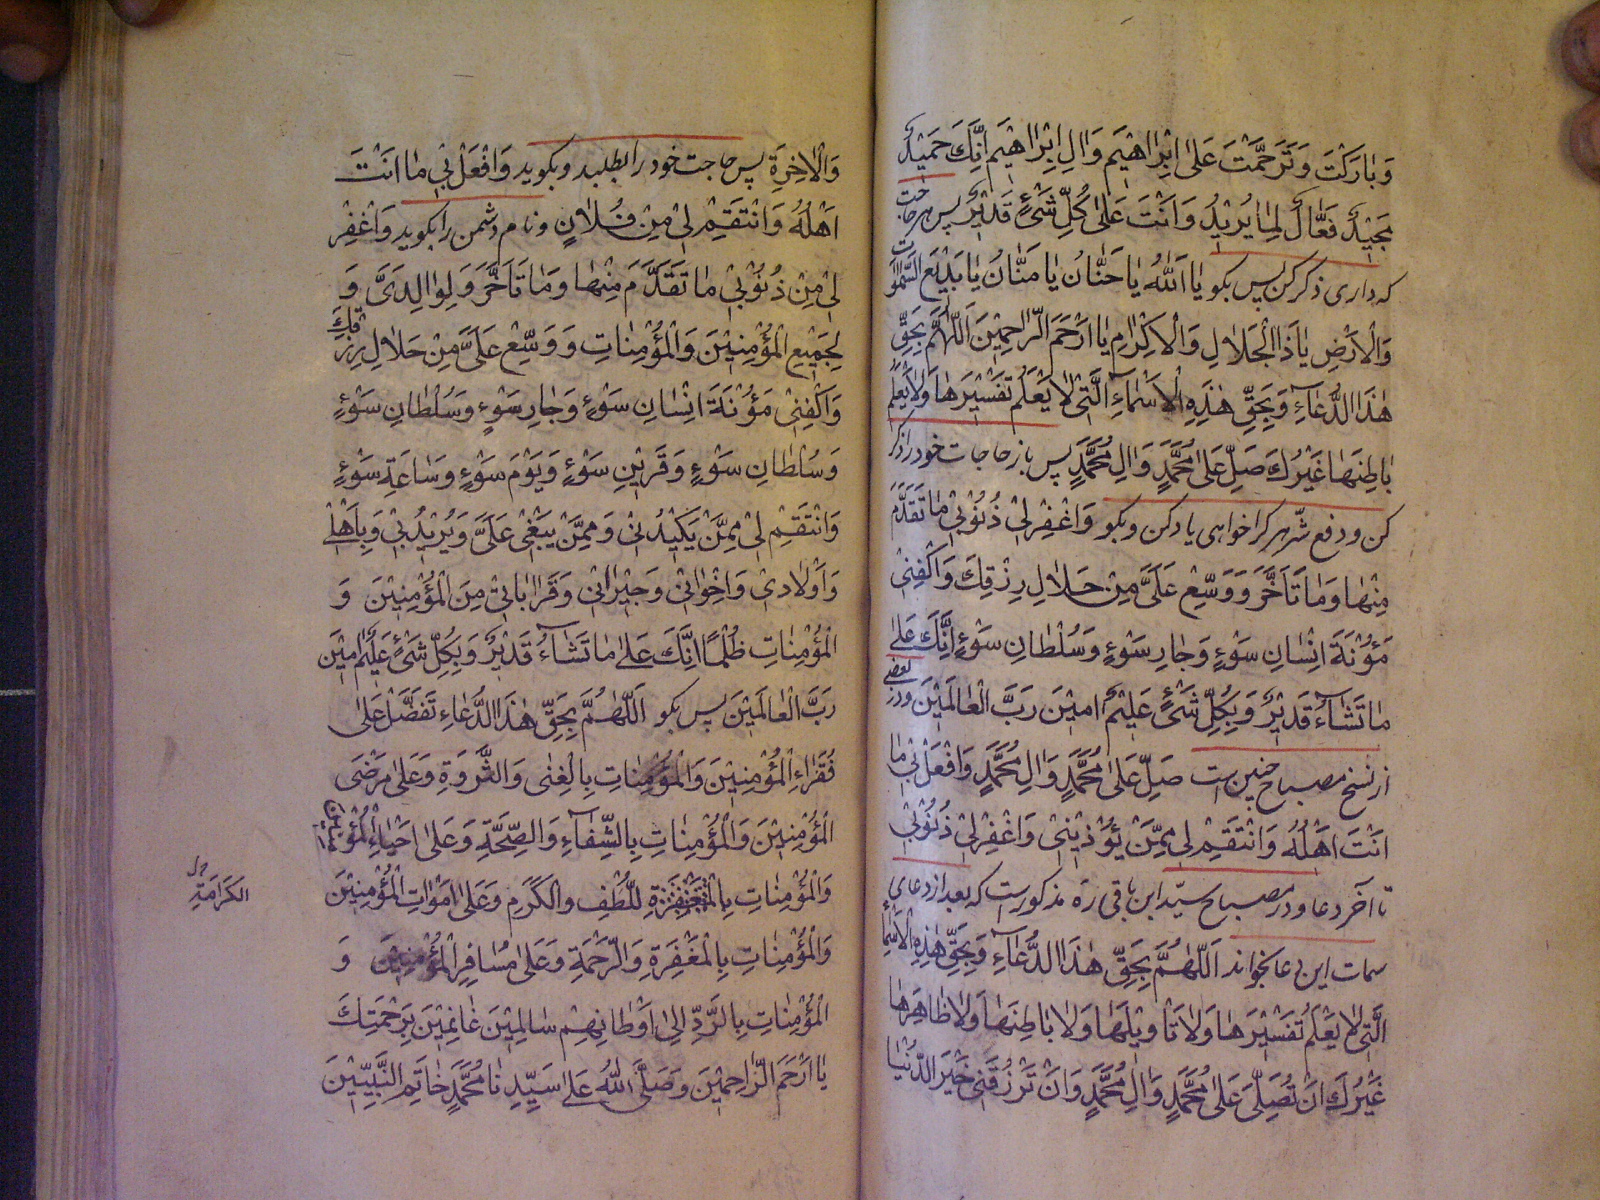 وَبٰارَكْتَ وَتَرَحَّمْتَ عَلىٰ اِبْرٰاهٖيمَ وَاٰلِ اِبْرٰاهٖيمَ اِنَّكَ حَمٖيدٌ
مَجٖيدٌ فَعّٰالٌ لِمٰا يُرٖيدُ وَاَنْتَ عَلىٰ كُلِّ شَئٍ قَدٖيرٌ پس هر حاجت
كه دارى ذكر كن پس بكو يٰا اَللّٰهُ يٰا حَنّٰانُ يٰا مَنّٰانُ يٰا بَدٖيعَ السَّمٰوٰاتِ
وَالْاَرْضِ يٰا ذَا الْجَلٰالِ وَالْاِكْرٰامِ يٰا اَرْحَمَ الرّٰاحِمٖينَ اَللّٰهُمَّ بِحَقِّ
هٰذَا الدُّعٰآءِ وَبِحَقِّ هٰذِهِ الْاَسْمٰآءِ الَّتٖى لٰا يَعْلَمُ تَفْسٖيرَهٰا وَلٰا يَعْلَمُ
بٰاطِنَهٰا غَيْرُكَ صَلِّ عَلىٰ مُحَمَّدٍ وَاٰلِ مُحَمَّدٍ پس باز حاجات خود را ذكر
كن ودفع شرّ هر كرا خواهى ياد كن وبكو وَاغْفِرْ لٖى ذُنُوبٖى مٰا تَقَدَّمَ
مِنْهٰا وَمٰا تَاَخَّرَ وَوَسِّعْ عَلَىَّ مِنْ حَلٰالِ رِزْقِكَ وَاكْفِنٖى
مَؤُنَةَ اِنْسٰانِ سَوْءٍ وَجٰارِ سَوْءٍ وَسُلْطٰانِ سَوْءٍ اِنَّكَ عَلىٰ
مٰا تَشٰآءُ قَدٖيرٌ وَبِكُلِّ شَئٍ عَلٖيمٌ اٰمٖينَ رَبَّ الْعٰالَمٖينَ ودر بعضى
از نسخ مصباح چنين است صَلِّ عَلىٰ مُحَمَّدٍ وَاٰلِ مُحَمَّدٍ وَافْعَلْ بٖى مٰا
اَنْتَ اَهْلُهُ وَانْتَقِمْ لٖى مِمَّنْ يُؤْذٖينٖى وَاغْفِرْ لٖى ذُنُوبٖى
تا آخر دعا ودر مصباح سيّد ابن باقى ره مذكور است كه بعد از دعاى
سمات اين دعا بخواند اَللّٰهُمَّ بِحَقِّ هٰذَا الدُّعٰآءِ وَبِحَقِّ هٰذِهِ الْاَسْمٰآءِ
الَّتٖى لٰا يَعْلَمُ تَفْسٖيرَهٰا وَلٰا تَأْوٖيلَهٰا وَلٰا بٰاطِنَهٰا وَلٰا ظٰاهِرَهٰا
غَيْرُكَ اَنْ تُصَلِّىَ عَلىٰ مُحَمَّدٍ وَاٰلِ مُحَمَّدٍ وَاَنْ تَرْزُقَنٖى خَيْرَ الدُّنْيٰا
وَالْاٰخِرَةِ پس حاجت خود را بطلبد وبكويد وَافْعَلْ بٖى مٰا اَنْتَ
اَهْلُهُ وَانْتَقِمْ لٖى مِنْ فُلٰانٍ ونام دشمن را بكويد وَاغْفِرْ
لٖى مِنْ ذُنُوبٖى مٰا تَقَدَّمَ مِنْهٰا وَمٰا تَاَخَّرَ وَلِوٰالِدَىَّ وَ
لِجَمٖيعِ الْمُؤْمِنٖينَ وَالْمُؤْمِنٰاتِ وَوَسِّعْ عَلَىَّ مِنْ حَلٰالِ رِزْقِكَ
وَاكْفِنٖى مَؤُنَةَ اِنْسٰانِ سَوْءٍ وَجٰارِ سَوْءٍ وَسُلْطٰانِ سَوْءٍ
وَسُلْطٰانِ سَوْءٍ وَقَرٖينِ سَوْءٍ وَيَوْمِ سَوْءٍ وَسٰاعَةِ سَوْءٍ
وَانْتَقِمْ لٖى مِمَّنْ يَكٖيدُنٖى وَمِمَّنْ يَبْغٖى عَلَىَّ وَيُرٖيدُ بٖى وَبِاَهْلٖى
وَاَوْلٰادٖى وَاِخْوٰانٖى وَجٖيرٰانٖى وَقَرٰابٰاتٖى مِنَ الْمُؤْمِنٖينَ وَ
الْمُؤْمِنٰاتِ ظُلْمًا اِنَّكَ عَلىٰ مٰا تَشٰآءُ قَدٖيرٌ وَبِكُلِّ شَئٍ عَلٖيمٌ اٰمٖينَ
رَبَّ الْعٰالَمٖينَ پس بكو اَللّٰهُمَّ بِحَقِّ هٰذَا الدُّعٰاءِ تَفَضَّلْ عَلىٰ
فُقَرٰاءِ الْمُؤْمِنٖينَ وَالْمُؤْمِنٰاتِ بِالْغِنٰى وَالثَّرْوَةِ وَعَلىٰ مَرْضَى
الْمُؤْمِنٖينَ وَالْمُؤْمِنٰاتِ بِالشِّفٰآءِ وَالصِّحَّةِ وَعَلىٰ اَحْيٰاءِ الْمُؤْمِنٖينَ
وَالْمُؤْمِنٰاتِ بِاللُّطْفِ والْكَرَمِ وَعَلىٰ اَمْوٰاتِ الْمُؤْمِنٖينَ
وَالْمُؤْمِنٰاتِ بِالْمَغْفِرَةِ وَالرَّحْمَةِ وَعَلىٰ مُسٰافِرِ الْمُؤْمِنٖينَ وَ
الْمُؤْمِنٰاتِ بِالرَّدِّ اِلىٰ اَوْطٰانِهِمْ سٰالِمٖينَ غٰانِمٖينَ بِرَحْمَتِكَ
يٰا اَرْحَمَ الرّٰاحِمٖينَ وَصَلَّى اللّٰهُ عَلىٰ سَيِّدِنٰا مُحَمَّدٍ خٰاتِمِ النَّبِيّٖينَ
الكَرَامَةِ